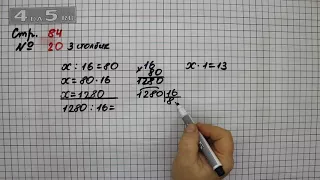 4 da 5 .me
Стр. 84
№ 20 3 столбик
x : 16 = 80
x = 80 · 16
x = 1280
1280 : 16 =
× 16
80
1280
1280 | 16
8
x · 1 = 13